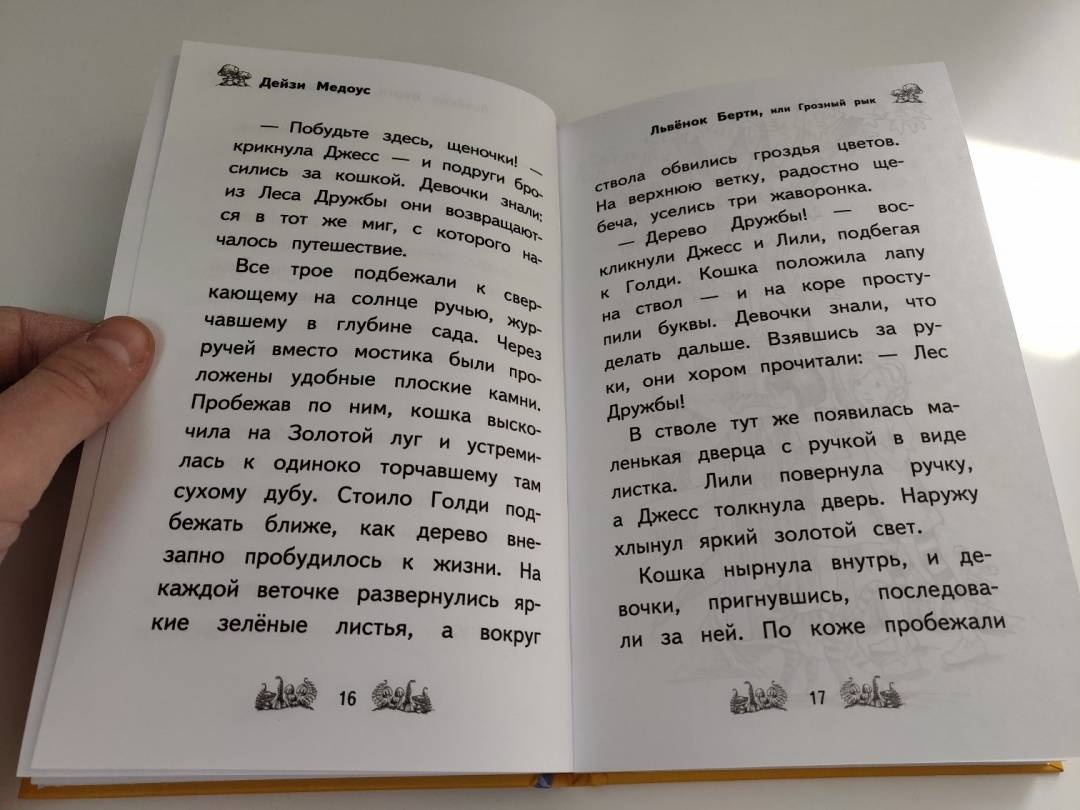 Дейзи Медоус
— Побудьте здесь, щеночки! —
крикнула Джесс — и подруги бро-
сились за кошкой. Девочки знали:
из Леса Дружбы они возвращают-
ся в тот же миг, с которого на-
чалось путешествие.
Все трое подбежали к свер-
кающему на солнце ручью, жур-
чавшему в глубине сада. Через
ручей вместо мостика были про-
ложены удобные плоские камни.
Пробежав по ним, кошка выско-
чила на Золотой луг и устреми-
лась к одиноко торчавшему там
сухому дубу. Стоило Голди под-
бежать ближе, как дерево вне-
запно пробудилось к жизни. На
каждой веточке развернулись яр-
кие зелёные листья, а вокруг
16
Львёнок Берти, или Грозный рык
ствола обвились гроздья цветов.
На верхнюю ветку, радостно ще-
беча, уселись три жаворонка.
— Дерево Дружбы! — вос-
кликнули Джесс и Лили, подбегая
к Голди. Кошка положила лапу
на ствол — и на коре просту-
пили буквы. Девочки знали, что
делать дальше. Взявшись за ру-
ки, они хором прочитали: — Лес
Дружбы!
В стволе тут же появилась ма-
ленькая дверца с ручкой в виде
листка. Лили повернула ручку,
а Джесс толкнула дверь. Наружу
хлынул яркий золотой свет.
Кошка нырнула внутрь, и де-
вочки, пригнувшись, последова-
ли за ней. По коже пробежали
17